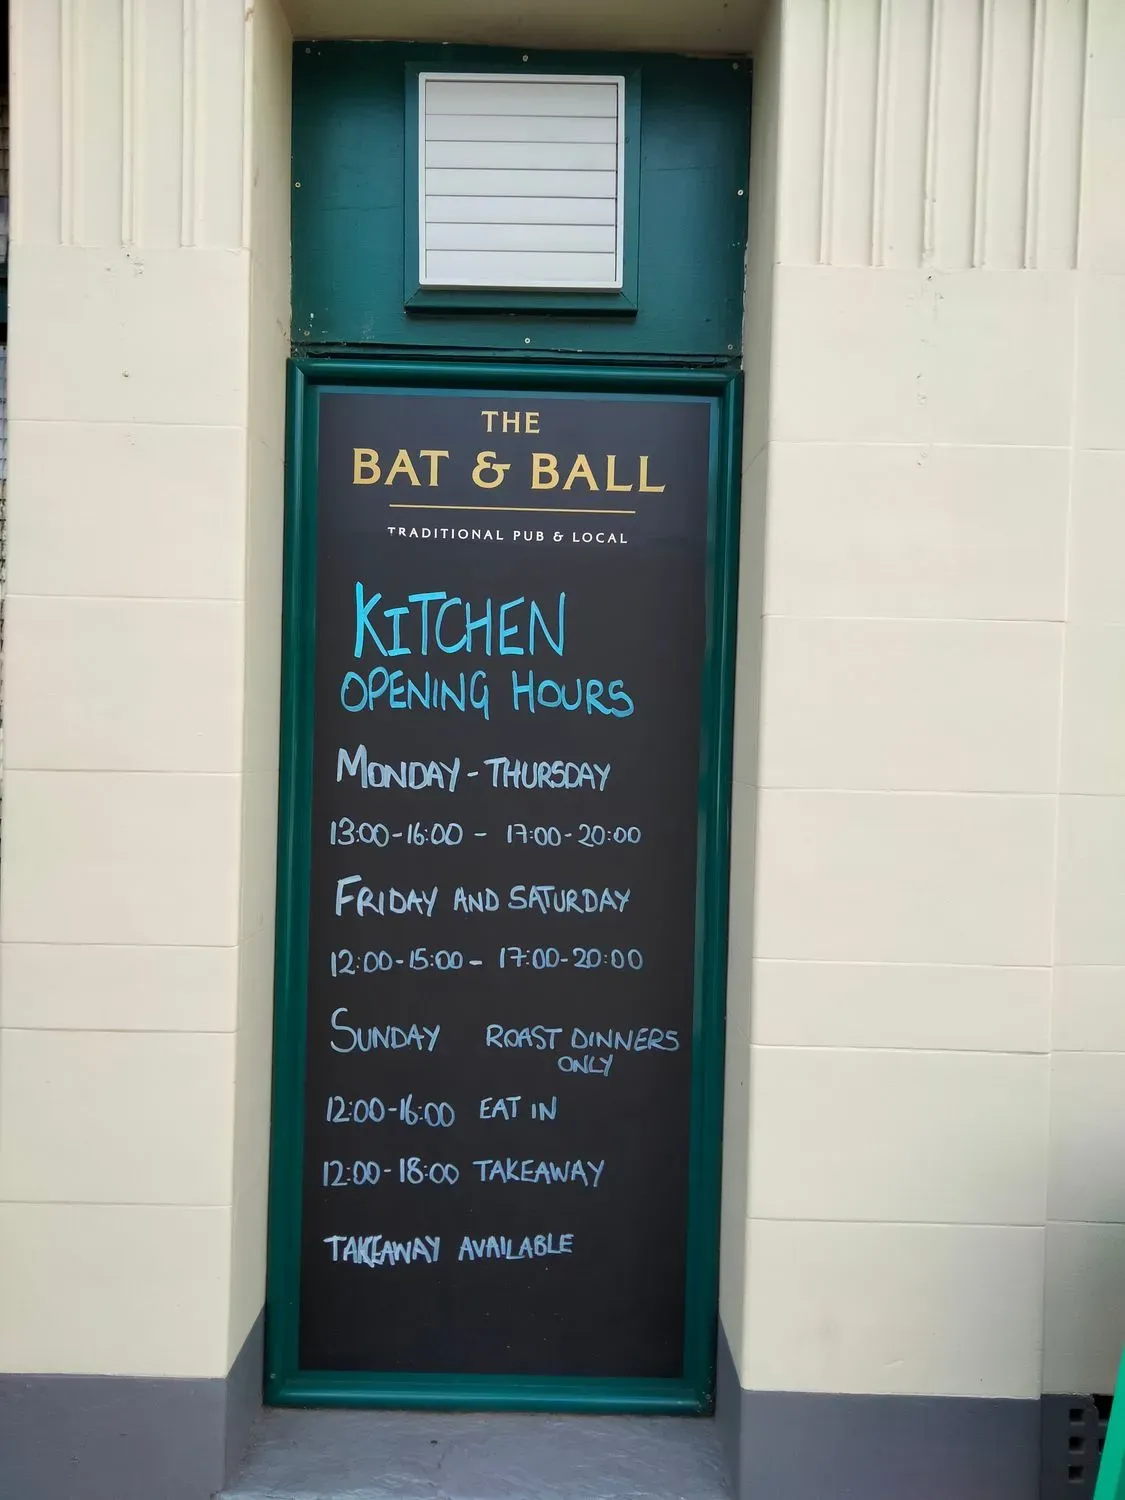 THE
BAT & BALL
TRADITIONAL PUB & LOCAL
KITCHEN
OPENING HOURS
MONDAY - THURSDAY
13:00-16:00 - 17:00-20:00
FRIDAY AND SATURDAY
12:00-15:00 - 17:00-20:00
SUNDAY ROAST DINNERS
ONLY
12:00-16:00 EAT IN
12:00-18:00 TAKEAWAY
TAKEAWAY AVAILABLE